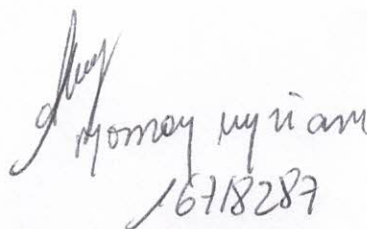 Monroy Myriam
16718287